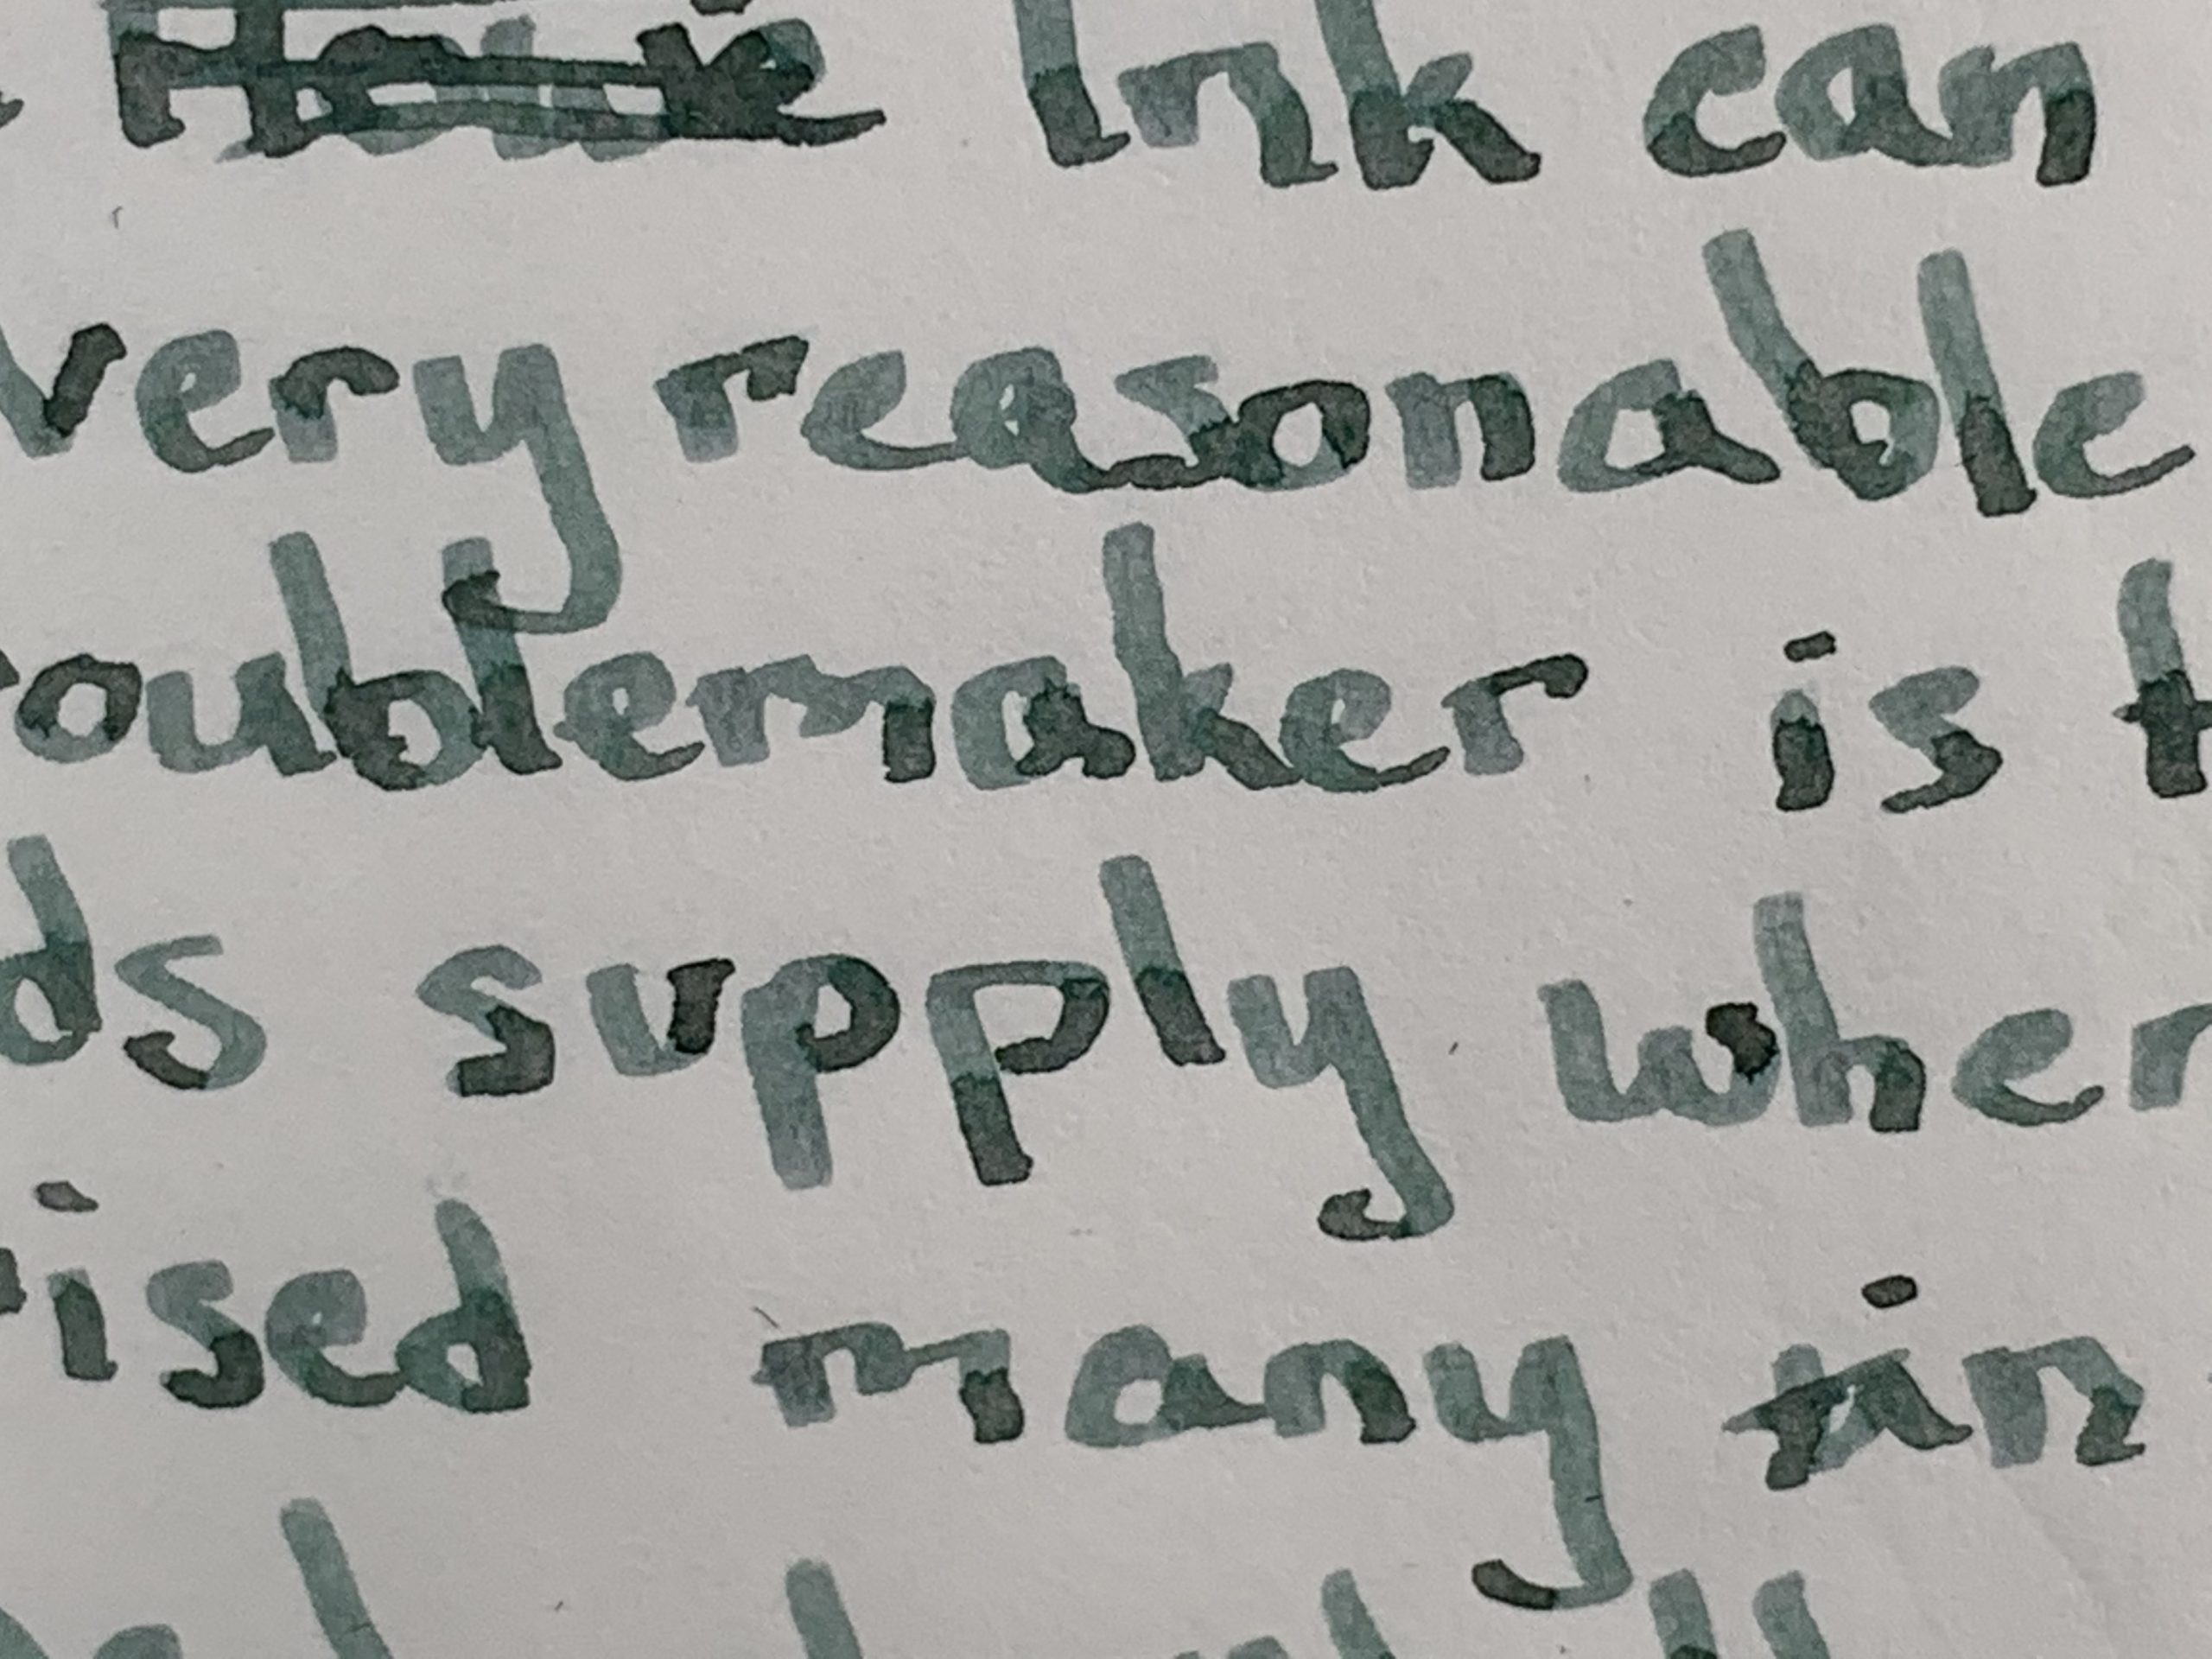 Ink can
very reasonable
oublemaker is t
ds supply wher
ised many in